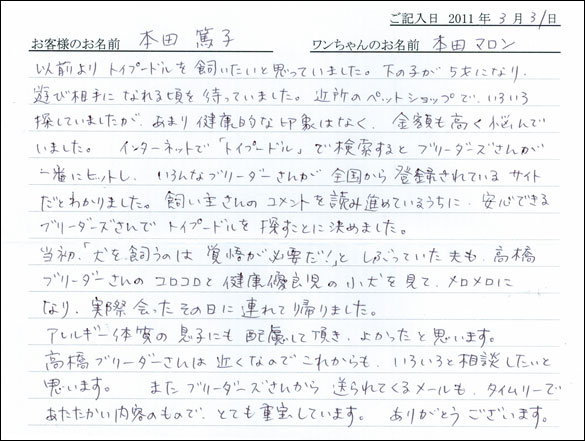 ご記入日 2011年 3月 31日
お客様のお名前 本田 篤子 ワンちゃんのお名前 本田マロン
以前より トイプードルを飼いたいと思っていました。下の子が5才になり、
遊び相手になれる頃を待っていました。近所のペットショップで、いろいろ
探していましたが、あまり健康的な印象はなく、金額も高く悩んで
いました。 インターネットで「トイプードル」で検索するとブリーダーズさんが
一番にヒットし、いろんなブリーダーさんが全国から登録されているサイト
だとわかりました。飼い主さんのコメントを読み進めているうちに、安心できる
ブリーダーズさんでトイプードルを探すことに決めました。
当初、「犬を飼うのは覚悟が必要だ!」としぶっていた夫も、高橋
ブリーダーさんのコロコロと健康優良児の小犬を見て、メロメロに
なり、実際会ったその日に連れて帰りました。
アレルギー体質の息子にも配慮して頂き、よかったと思います。
高橋ブリーダーさんは近くなのでこれからも、いろいろと相談したいと
思います。 またブリーダーズさんから送られてくるメールも、タイムリーで
あたたかい内容のもので、とても重宝しています。 ありがとうございます。